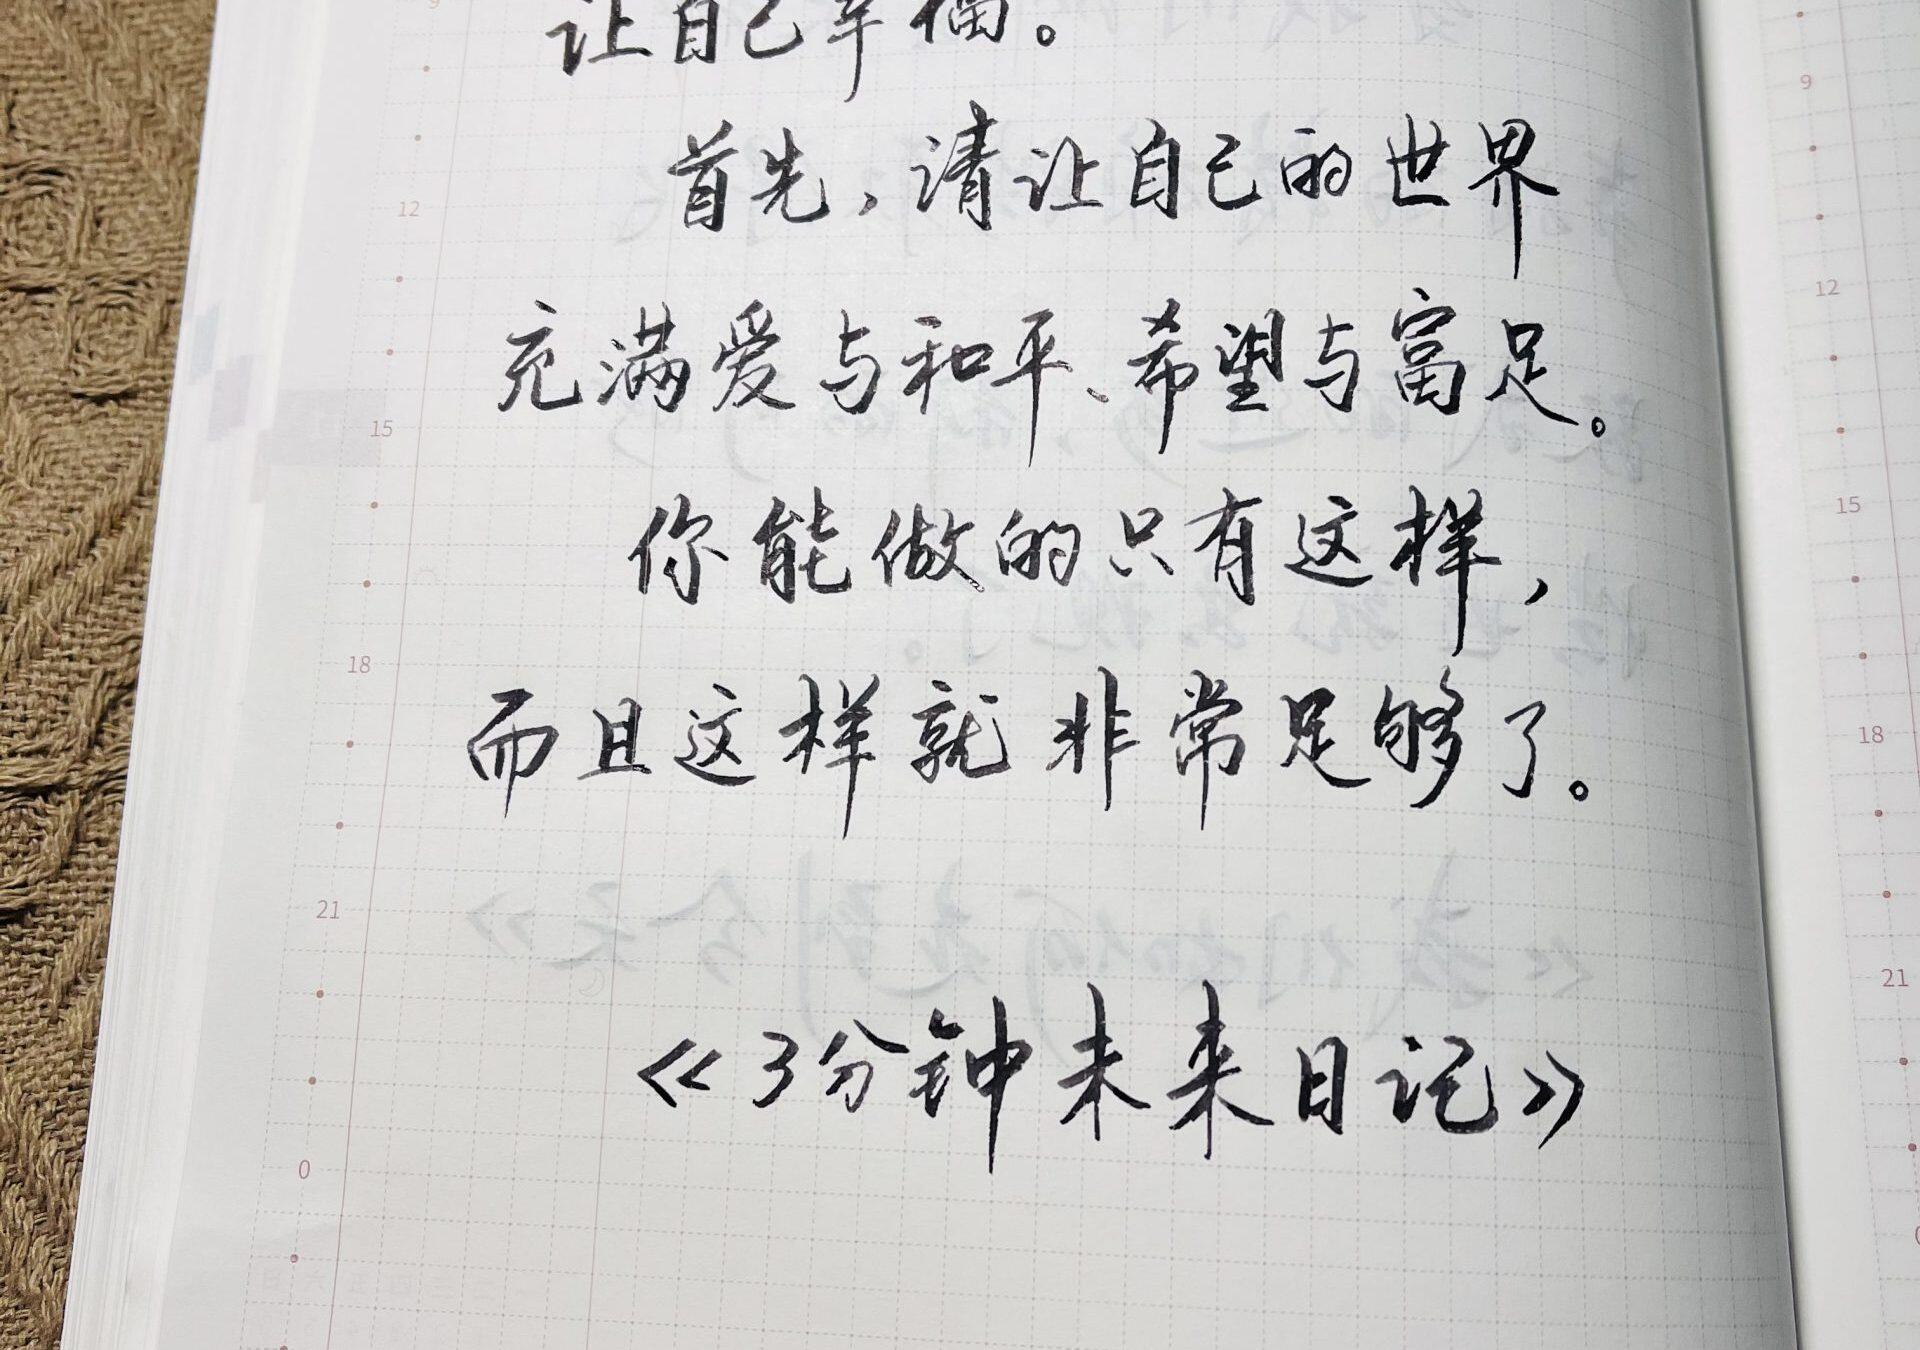 让自己幸福。
首先,请让自己的世界
充满爱与和平、希望与富足。
你能做的只有这样,
而且这样就非常足够了。
《3分钟未来日记》
9
12
15
18
21
0
9
12
15
18
21